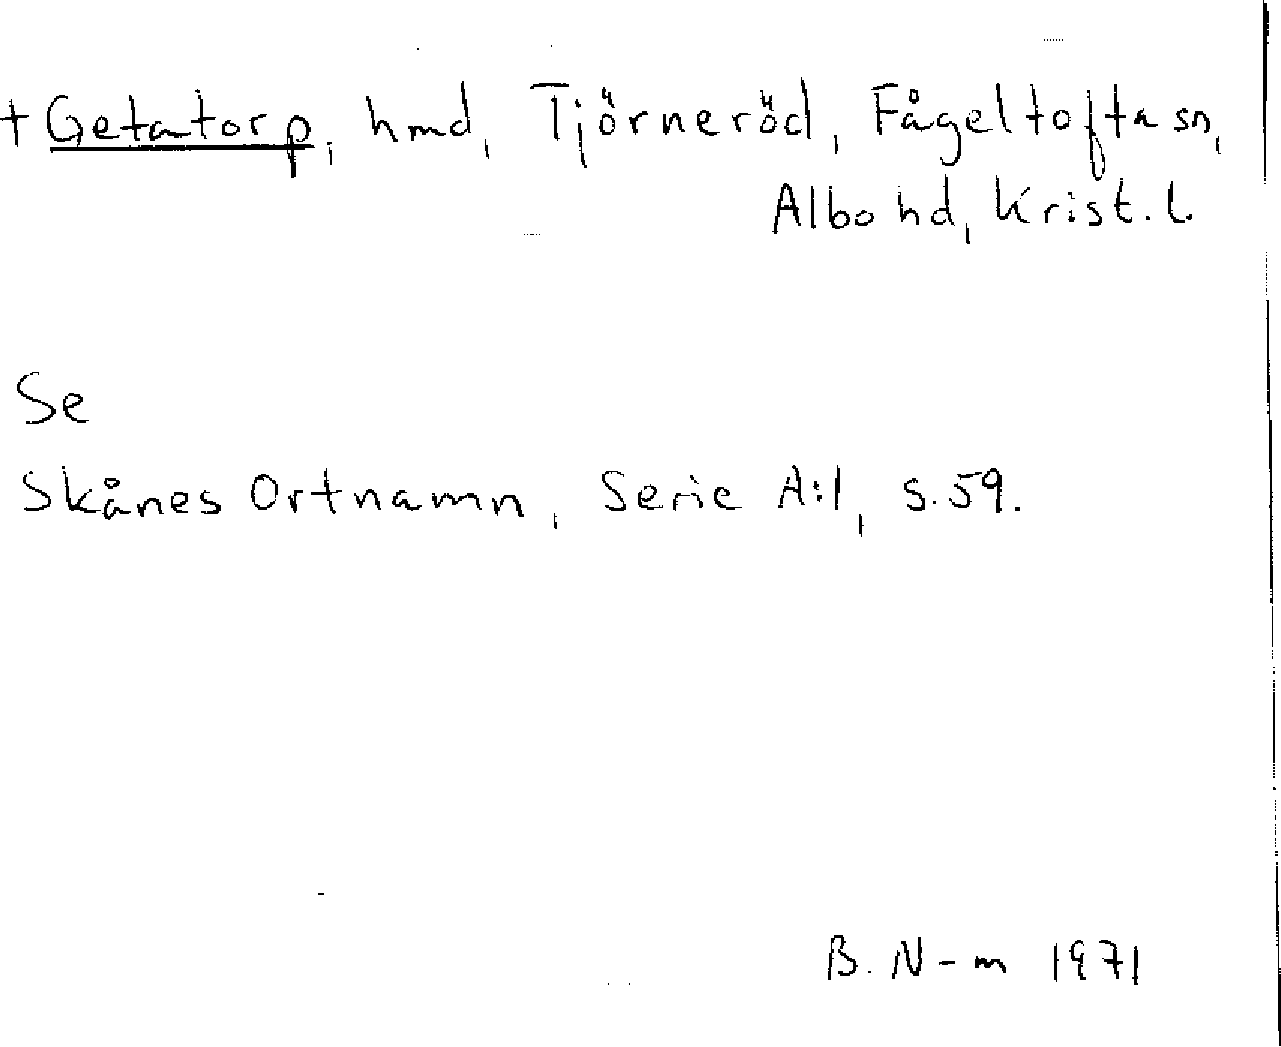 + Getatorp, hmd, Tjörneröd, Fågeltofta sn,
Albo hd, Krist. l.
Se
Skånes Ortnamn, Serie A:1, s. 59.
B. N-m 1971